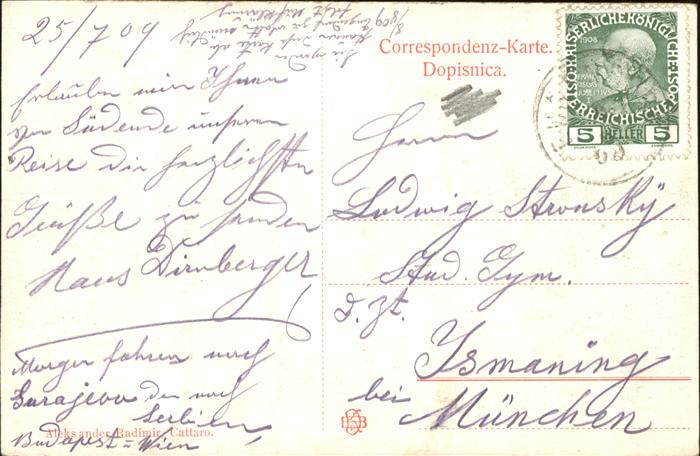 25/7 09
Erlauben mir Ihnen
vom Südende unserer
Reise die herzlichsten
Grüße zu senden
Hans Dirnberger
Morgen fahren nach
Sarajevo dan nach
Serbien,
Budapest = Wien
Aleksander Radimir, Cattaro.
Correspondenz-Karte.
Dopisnica.
1908
5 HELLER 5
Herrn
Ludwig Stronsky
Stud. Gym.
d. Zt.
Ismaning
bei
München